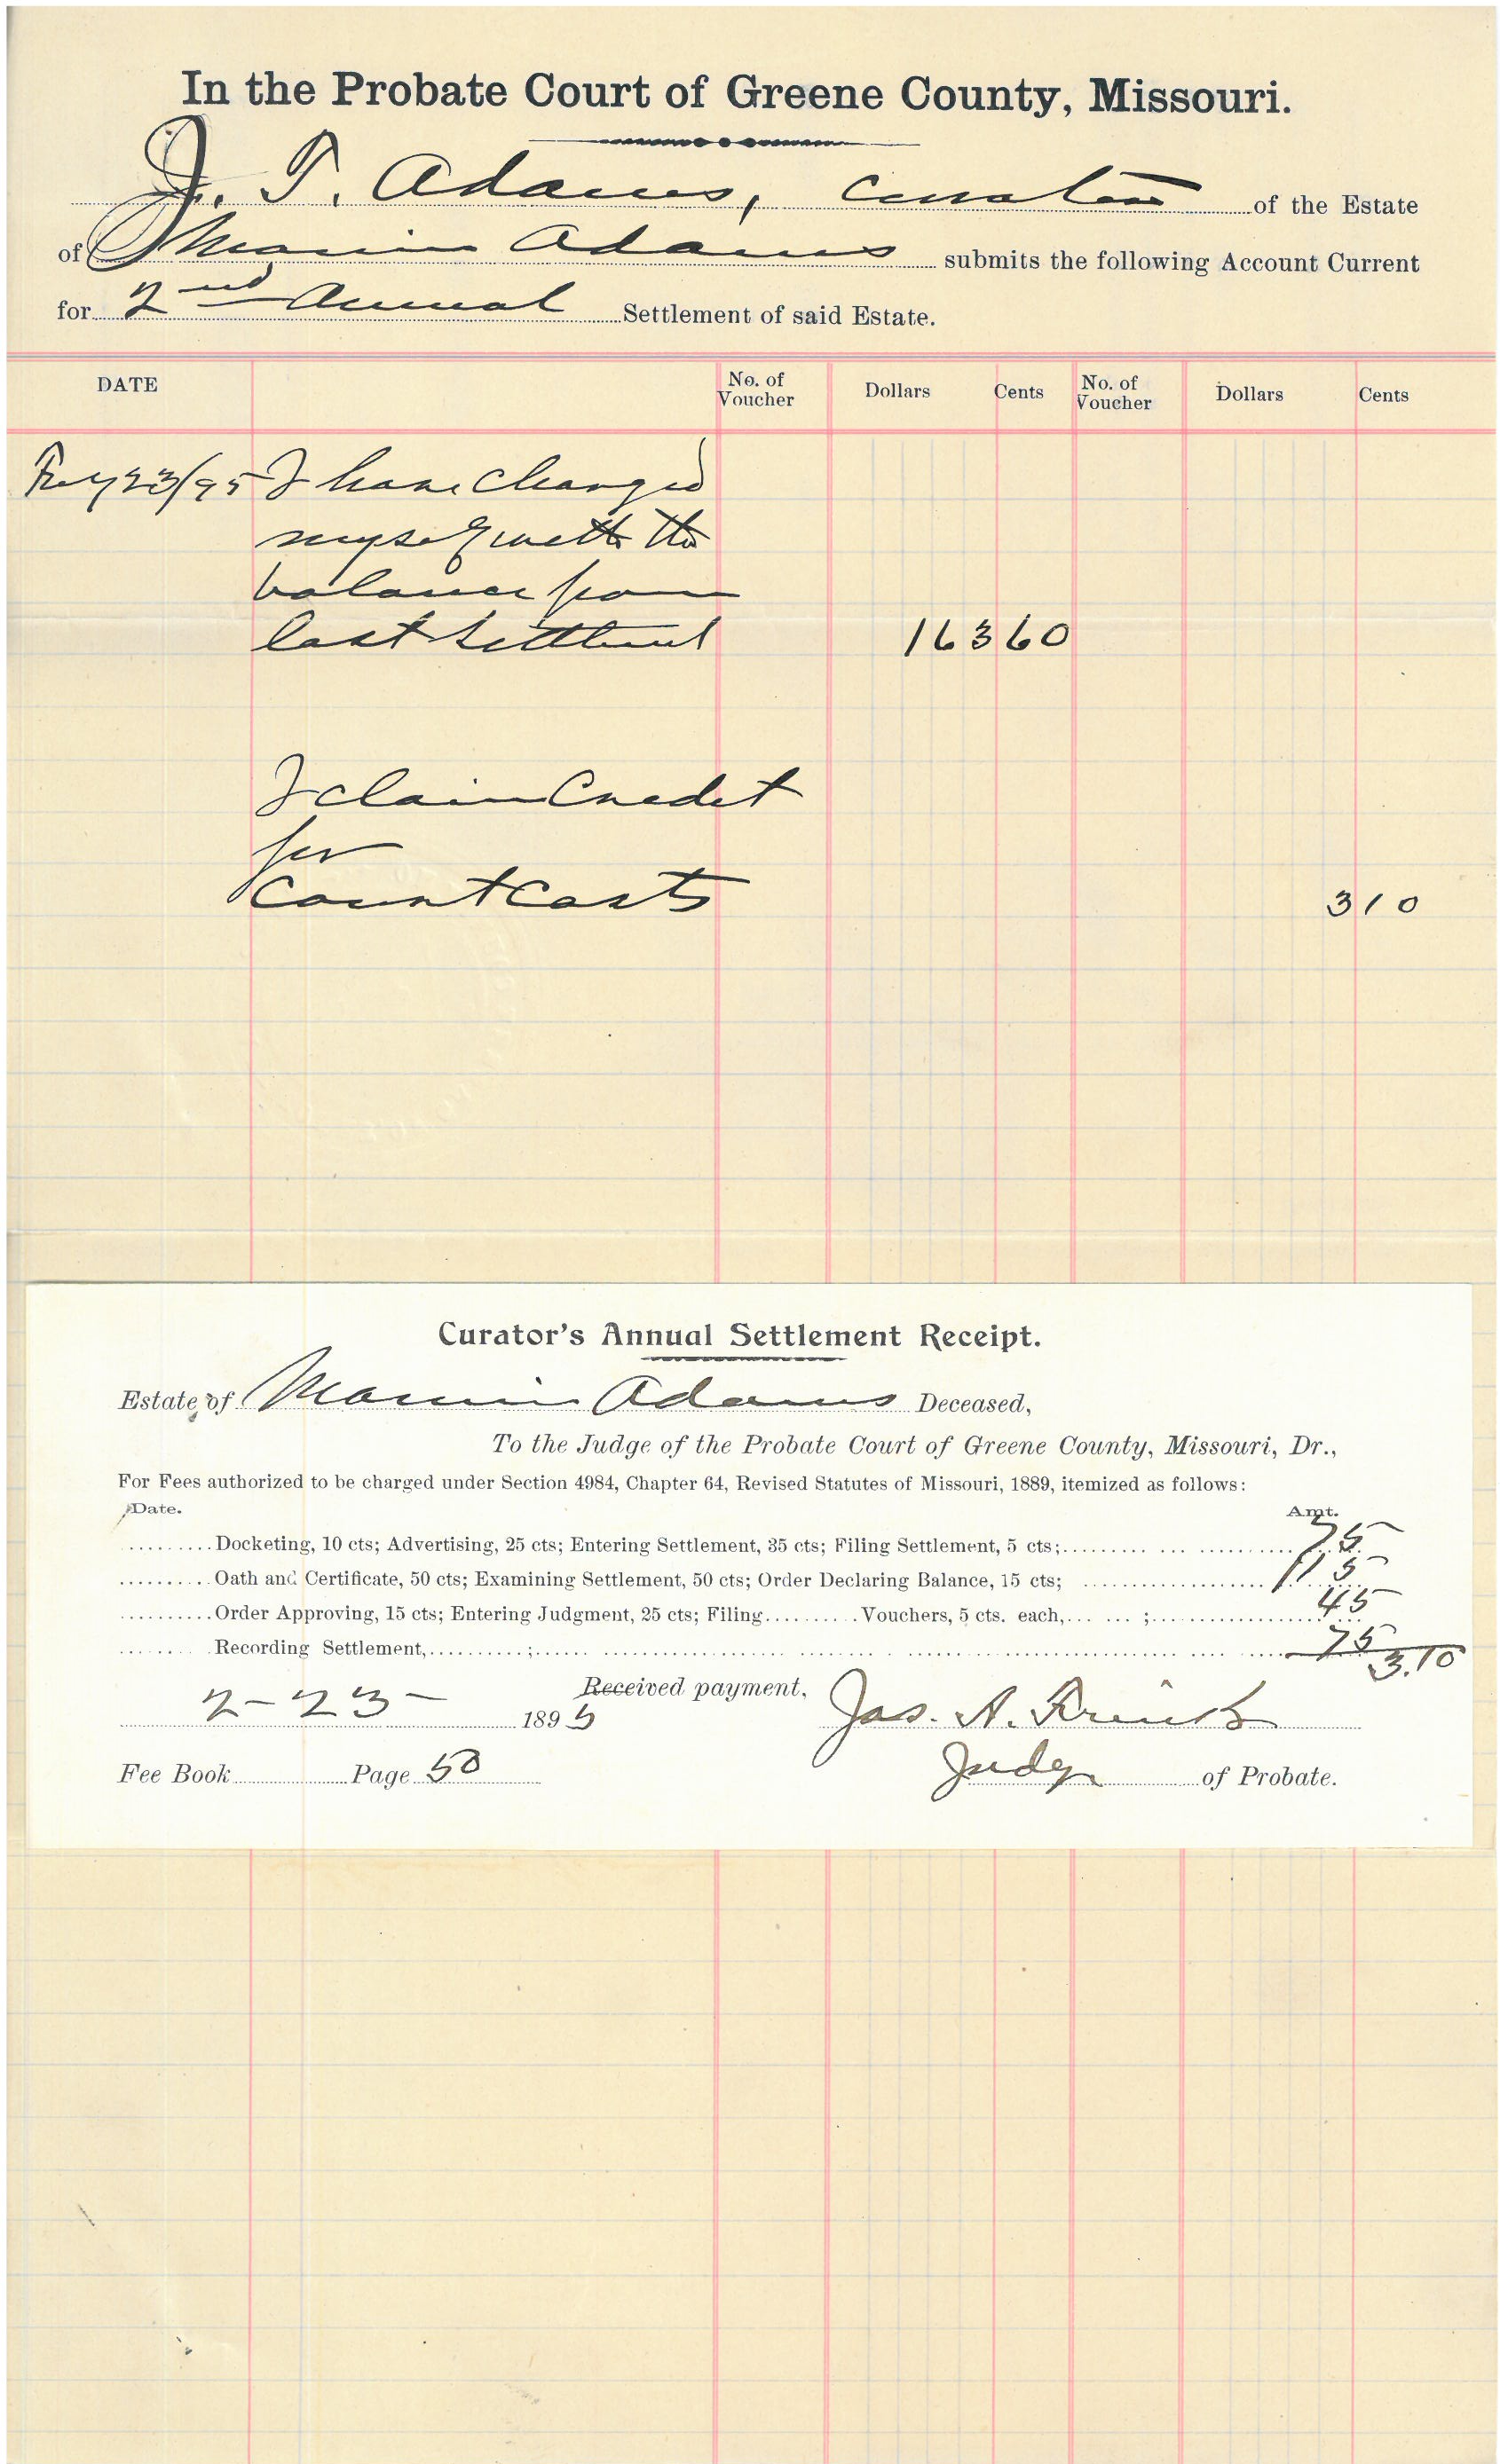 In the Probate Court of Greene County, Missouri.
J. T. Adams, curator of the Estate
of Adams submits the following Account Current
for 2nd Annual Settlement of said Estate.
DATE No. of Voucher Dollars Cents No. of Voucher Dollars Cents
23/95 I have charged
myself with the
balance from
last settlement 163 60
I claim credit
for
court costs 3 10
Curator's Annual Settlement Receipt.
Estate of Adams Deceased,
To the Judge of the Probate Court of Greene County, Missouri, Dr.,
For Fees authorized to be charged under Section 4984, Chapter 64, Revised Statutes of Missouri, 1889, itemized as follows:
Date. Amt.
Docketing, 10 cts; Advertising, 25 cts; Entering Settlement, 35 cts; Filing Settlement, 5 cts; 75
Oath and Certificate, 50 cts; Examining Settlement, 50 cts; Order Declaring Balance, 15 cts; 1.15
Order Approving, 15 cts; Entering Judgment, 25 cts; Filing Vouchers, 5 cts. each, ; 45
Recording Settlement, ; 75
3.10
Received payment,
2-23- 1895 Jas. A.
Fee Book Page 50 Judge of Probate.